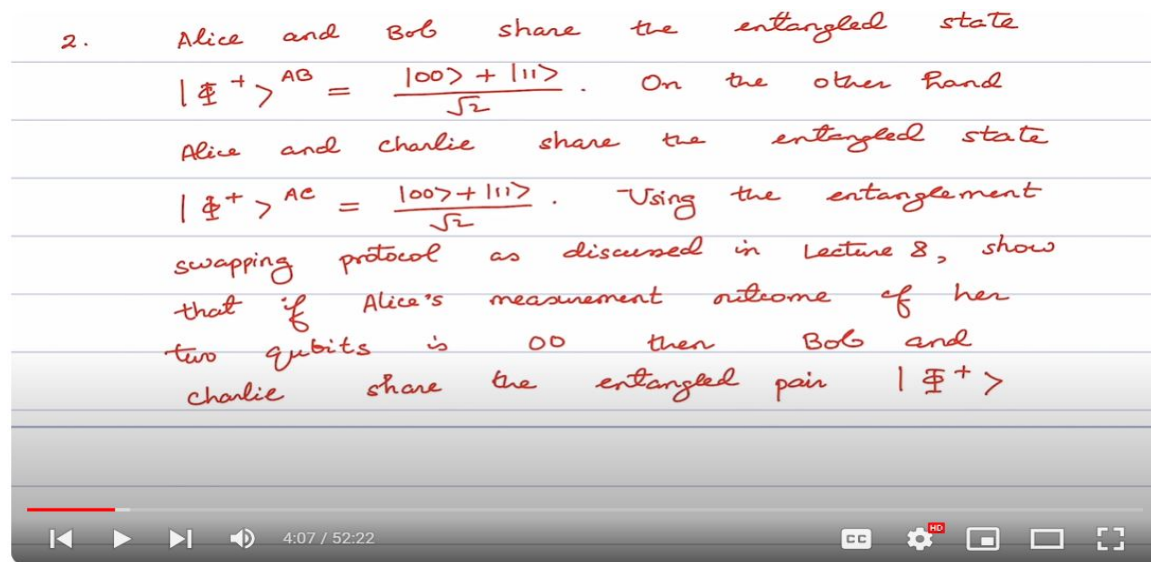 2. Alice and Bob share the entangled state
|Φ⁺>ᴬᴮ = |00> + |11> / √2 . On the other hand
Alice and charlie share the entangled state
|Φ⁺>ᴬᶜ = |00> + |11> / √2 . Using the entanglement
swapping protocol as discussed in Lecture 8, show
that if Alice's measurement outcome of her
two qubits is 00 then Bob and
charlie share the entangled pair |Φ⁺>
4:07 / 52:22
CC
HD